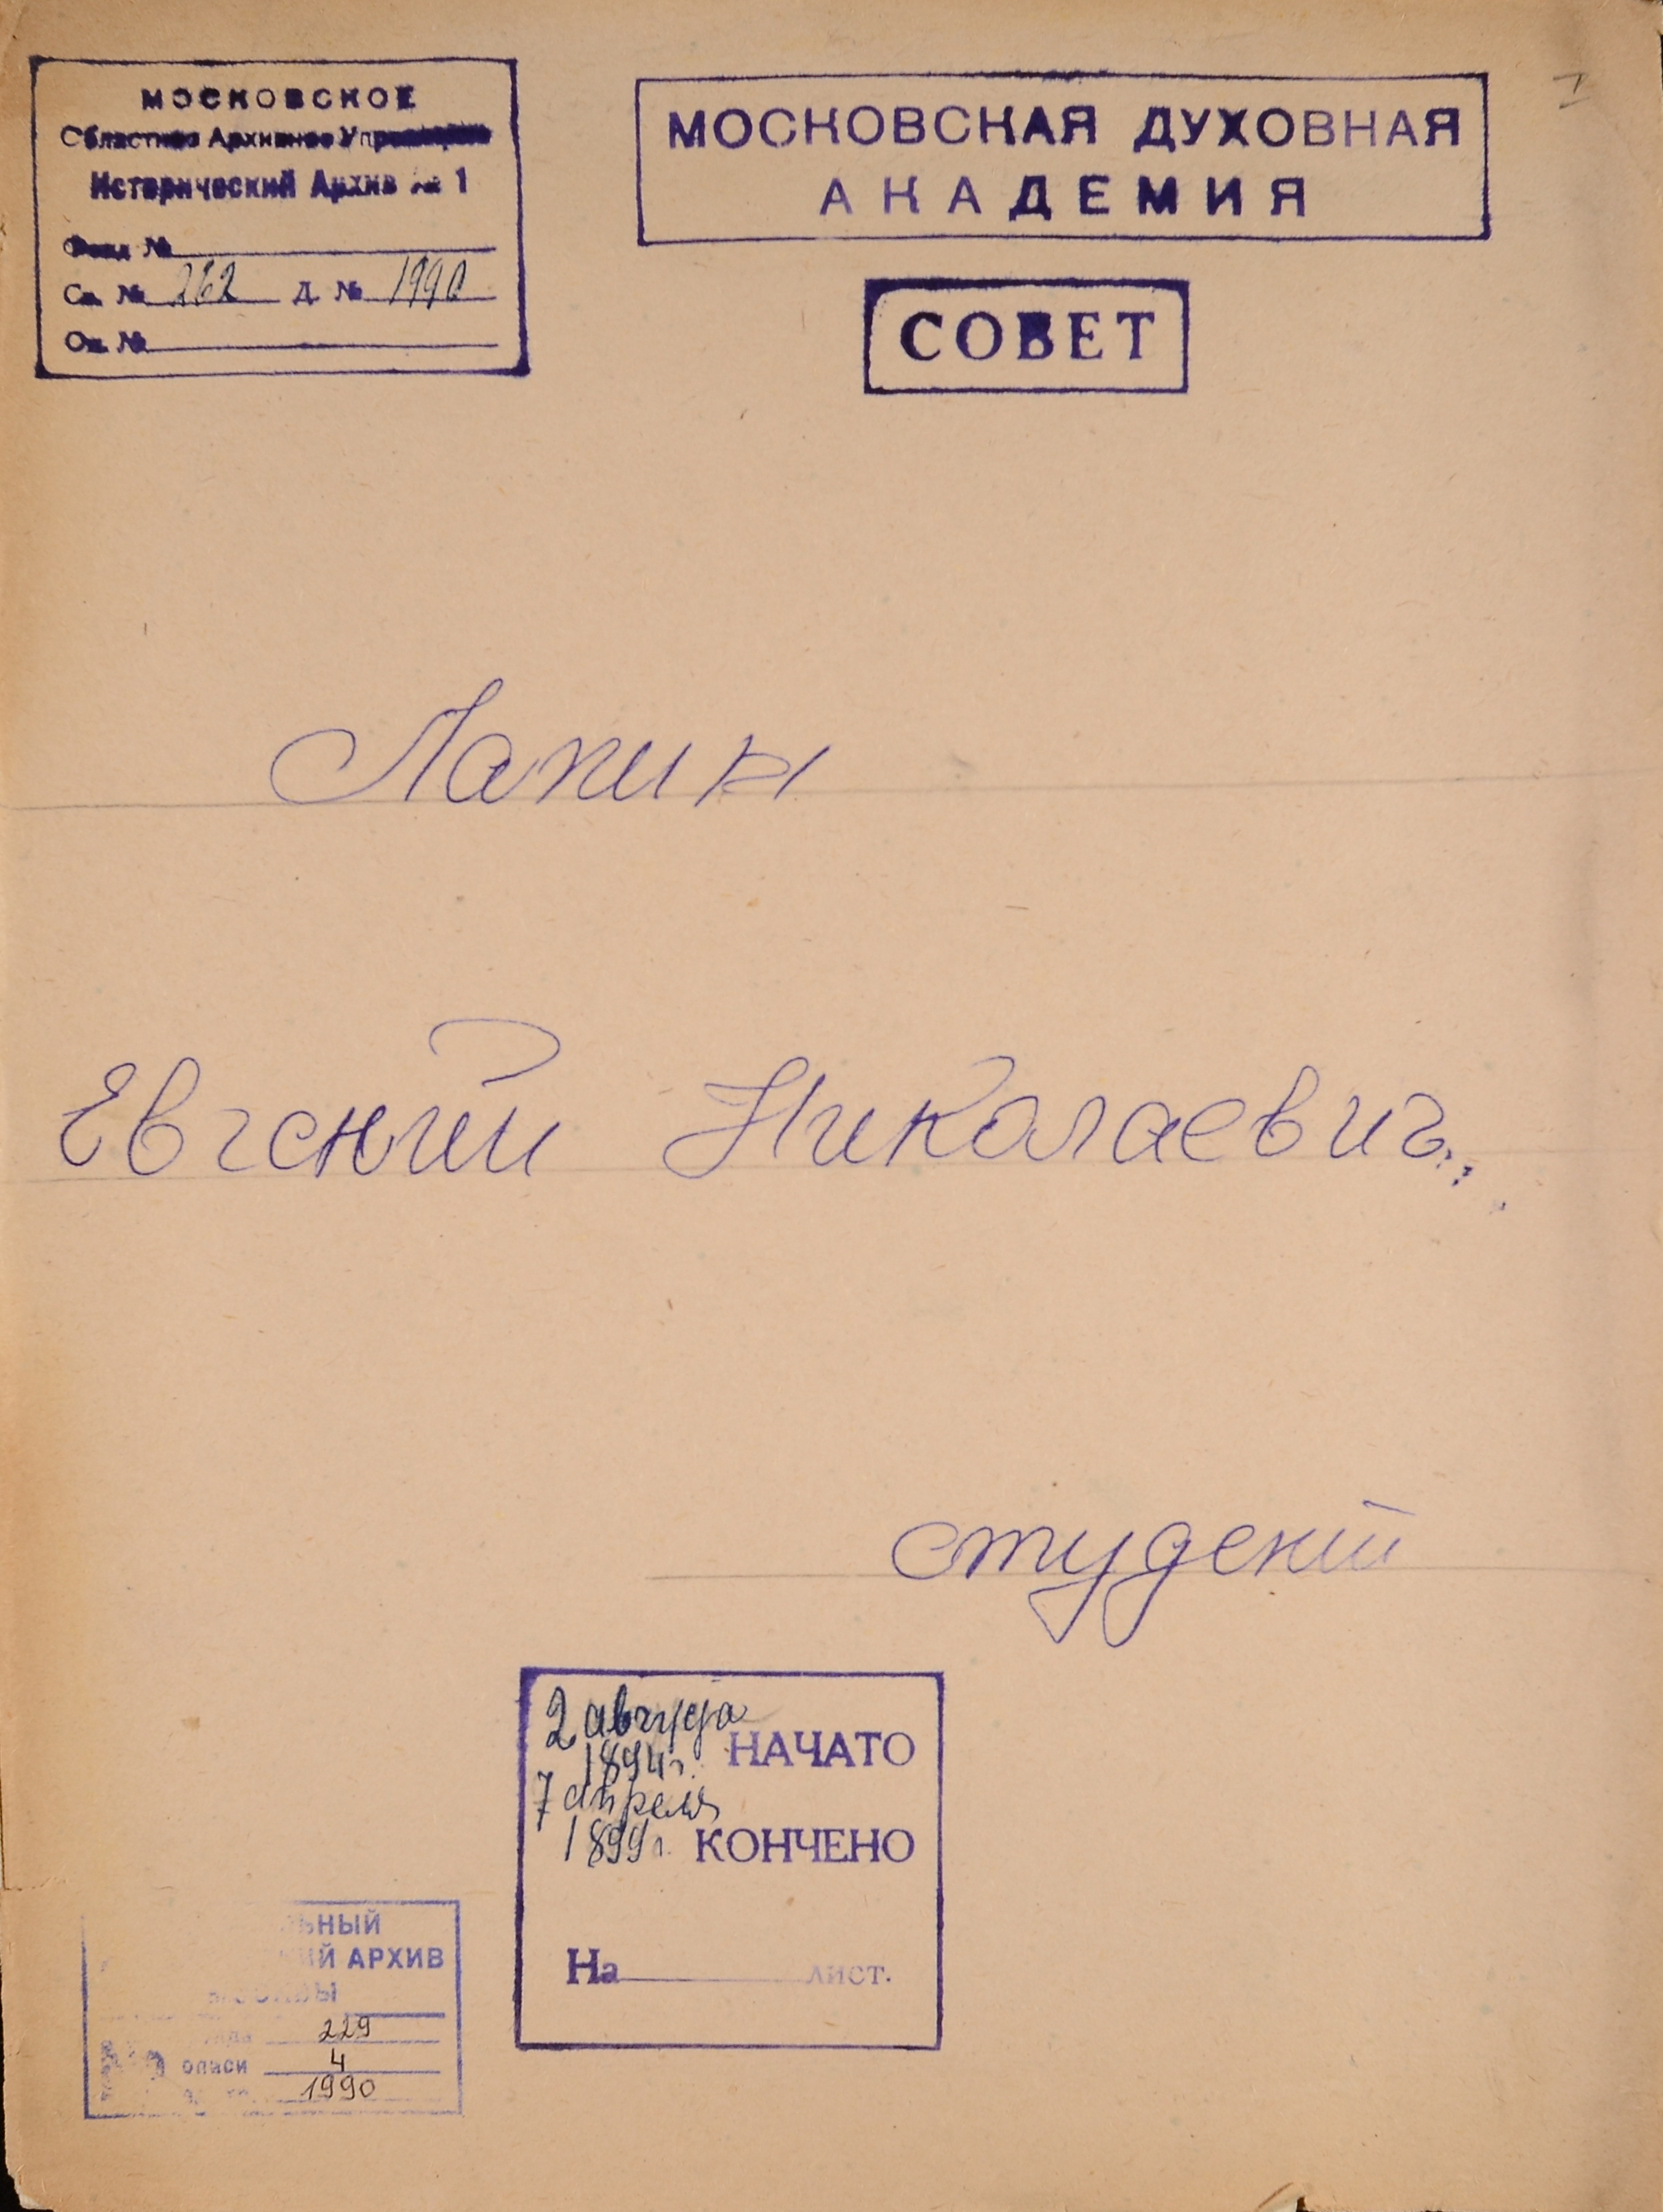 МОСКОВСКОЕ
Областное Архивное Управление
Исторический Архив № 1
Фонд №
Св. № 262 Д. № 1990
Оп. №
МОСКОВСКАЯ ДУХОВНАЯ
АКАДЕМИЯ
СОВЕТ
Лапин
Евгений Николаевич
студент
2 августа
1894 г. НАЧАТО
7 апреля
1899 г. КОНЧЕНО
На лист.
ЬНЫЙ
ИЙ АРХИВ
229
описи 4
1990